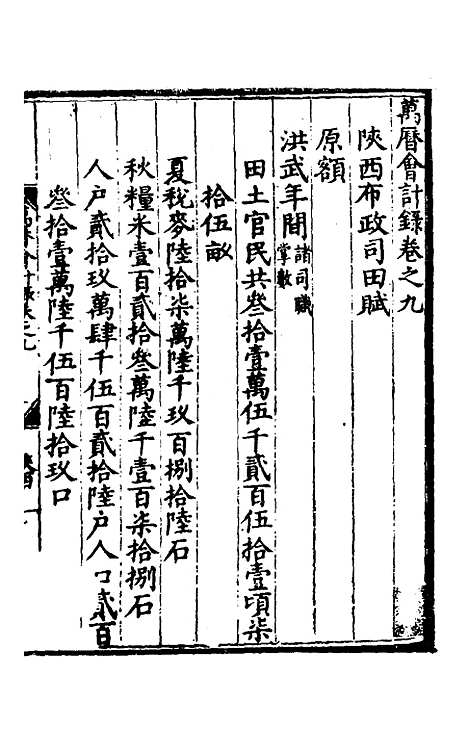 萬曆會計録卷之九
陝西布政司田賦
原額
洪武年間諸司職掌數
田土官民共叄拾壹萬伍千貳百伍拾壹頃柒
拾伍畝
夏稅麥陸拾柒萬陸千玖百捌拾陸石
秋糧米壹百貳拾叄萬陸千壹百柒拾捌石
人户貳拾玖萬肆千伍百貳拾陸户人口貳百
叄拾壹萬陸千伍百陸拾玖口